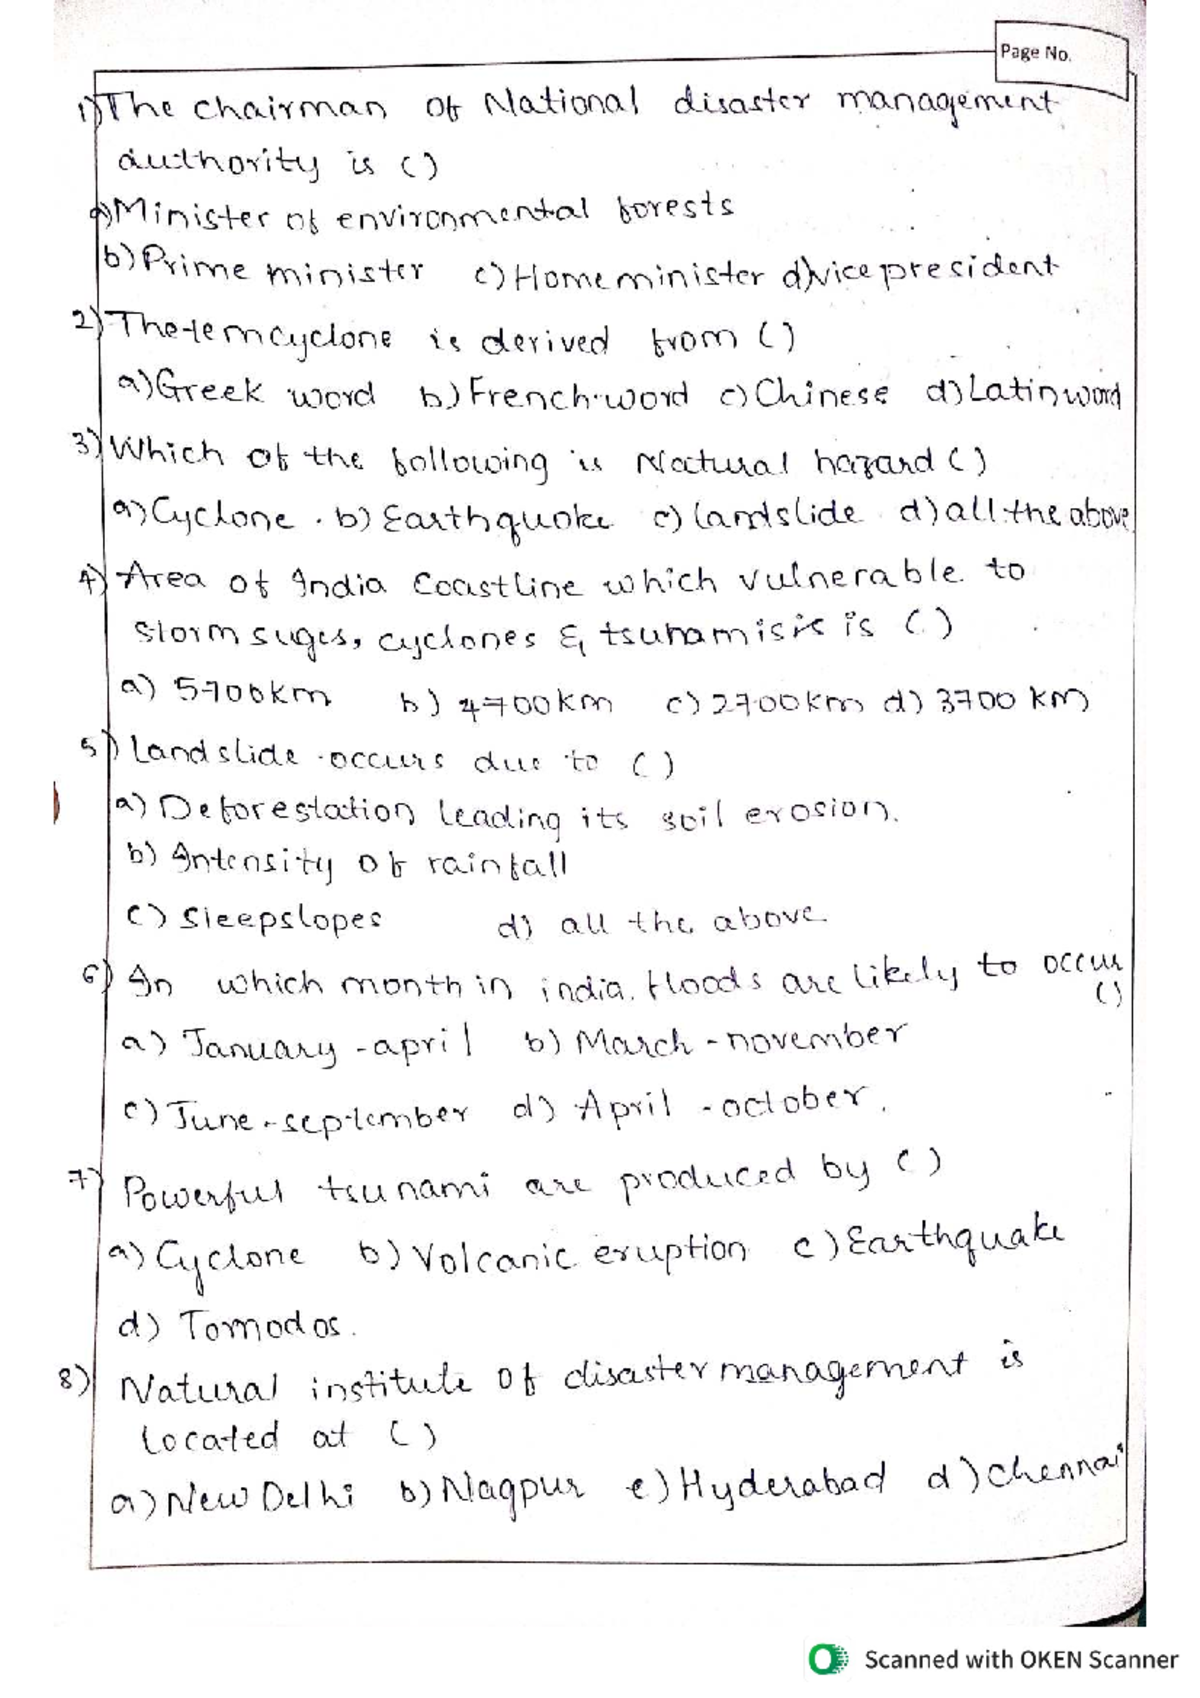 Page No.
1) The chairman of National disaster management
authority is ( )
a) Minister of environmental forests
b) Prime minister c) Home minister d) vice president
2) The tem cyclone is derived from ( )
a) Greek word b) French word c) Chinese d) Latin word
3) Which of the following is Natural hazard ( )
a) Cyclone b) Earthquake c) landslide d) all the above
4) Area of India Coastline which vulnerable to
Storm suges, cyclones & tsunamis is is ( )
a) 5700km b) 4700km c) 2700km d) 3700 km
5) Landslide occurs due to ( )
a) Deforestation leading its soil erosion.
b) Intensity of rainfall
c) Steepslopes d) all the above
6) In which month in india floods are likely to occur
( )
a) January - april b) March - november
c) June - september d) April - october.
7) Powerful tsunami are produced by ( )
a) Cyclone b) Volcanic eruption c) Earthquake
d) Tornodos.
8) Natural institute of disaster management is
located at ( )
a) New Delhi b) Nagpur c) Hyderabad d) Chennai
Scanned with OKEN Scanner